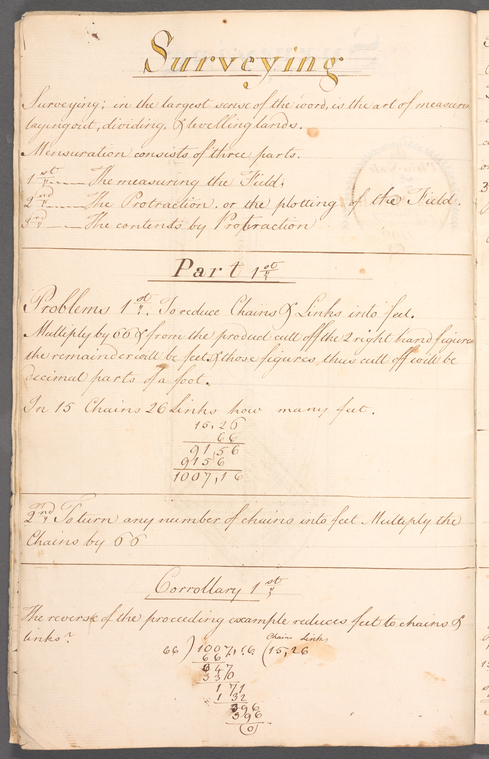 Surveying
Surveying; in the largest sense of the word, is the art of measuring
laying out, dividing, & levelling lands.
Mensuration consists of three parts.
1st The measuring the Field.
2nd The Protraction. or the plotting of the Field.
3rd The contents by Protraction
Part 1st
Problems 1st. To reduce Chains & Links into feet.
Multiply by 66 & from the product cutt off the 2 right hand figures
the remainder will be feet, & those figures thus cutt off will be
decimal parts of a foot.
In 15 Chains 26 Links how many feet.
15,26
66
91,56
9156
1007,16
2nd To turn any number of chains into feet Multiply the
Chains by 66
Corrollary 1st
The reverse of the proceeding example reduces feet to chains &
links?
Chains Links
66 ) 1007,16 ( 15,26
66
347
330
171
132
396
396
(0)